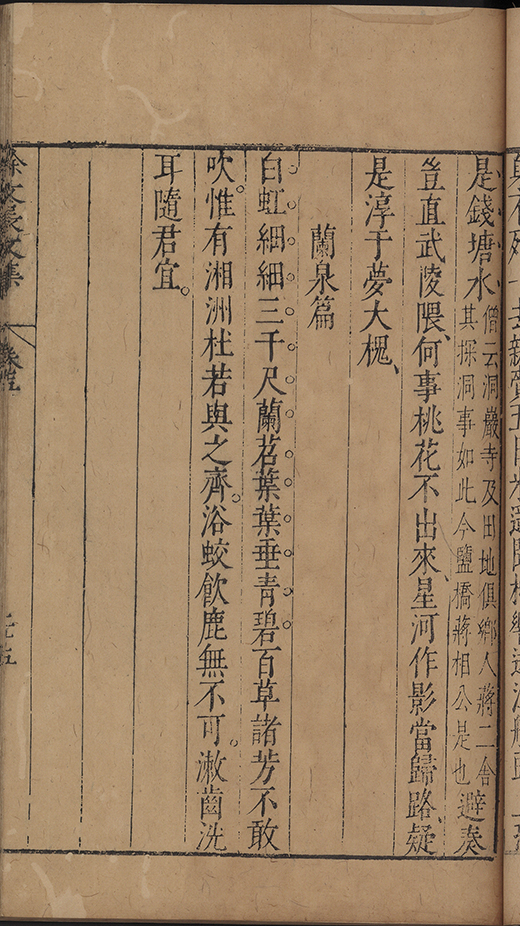 是錢塘水僧云洞巖寺及田地俱鄉人蔣二舍
其探洞事如此今鹽橋蔣相公是也避秦
豈直武陵隈、何事桃花不出來、星河作影當歸路、疑
是淳于夢大槐、
蘭泉篇
白虹細細三千尺蘭苕葉葉垂青碧百草諸芳不敢
吹。惟有湘洲杜若與之齊。浴蛟飲鹿無不可。潄齒洗
耳隨君宜。
徐文長文集